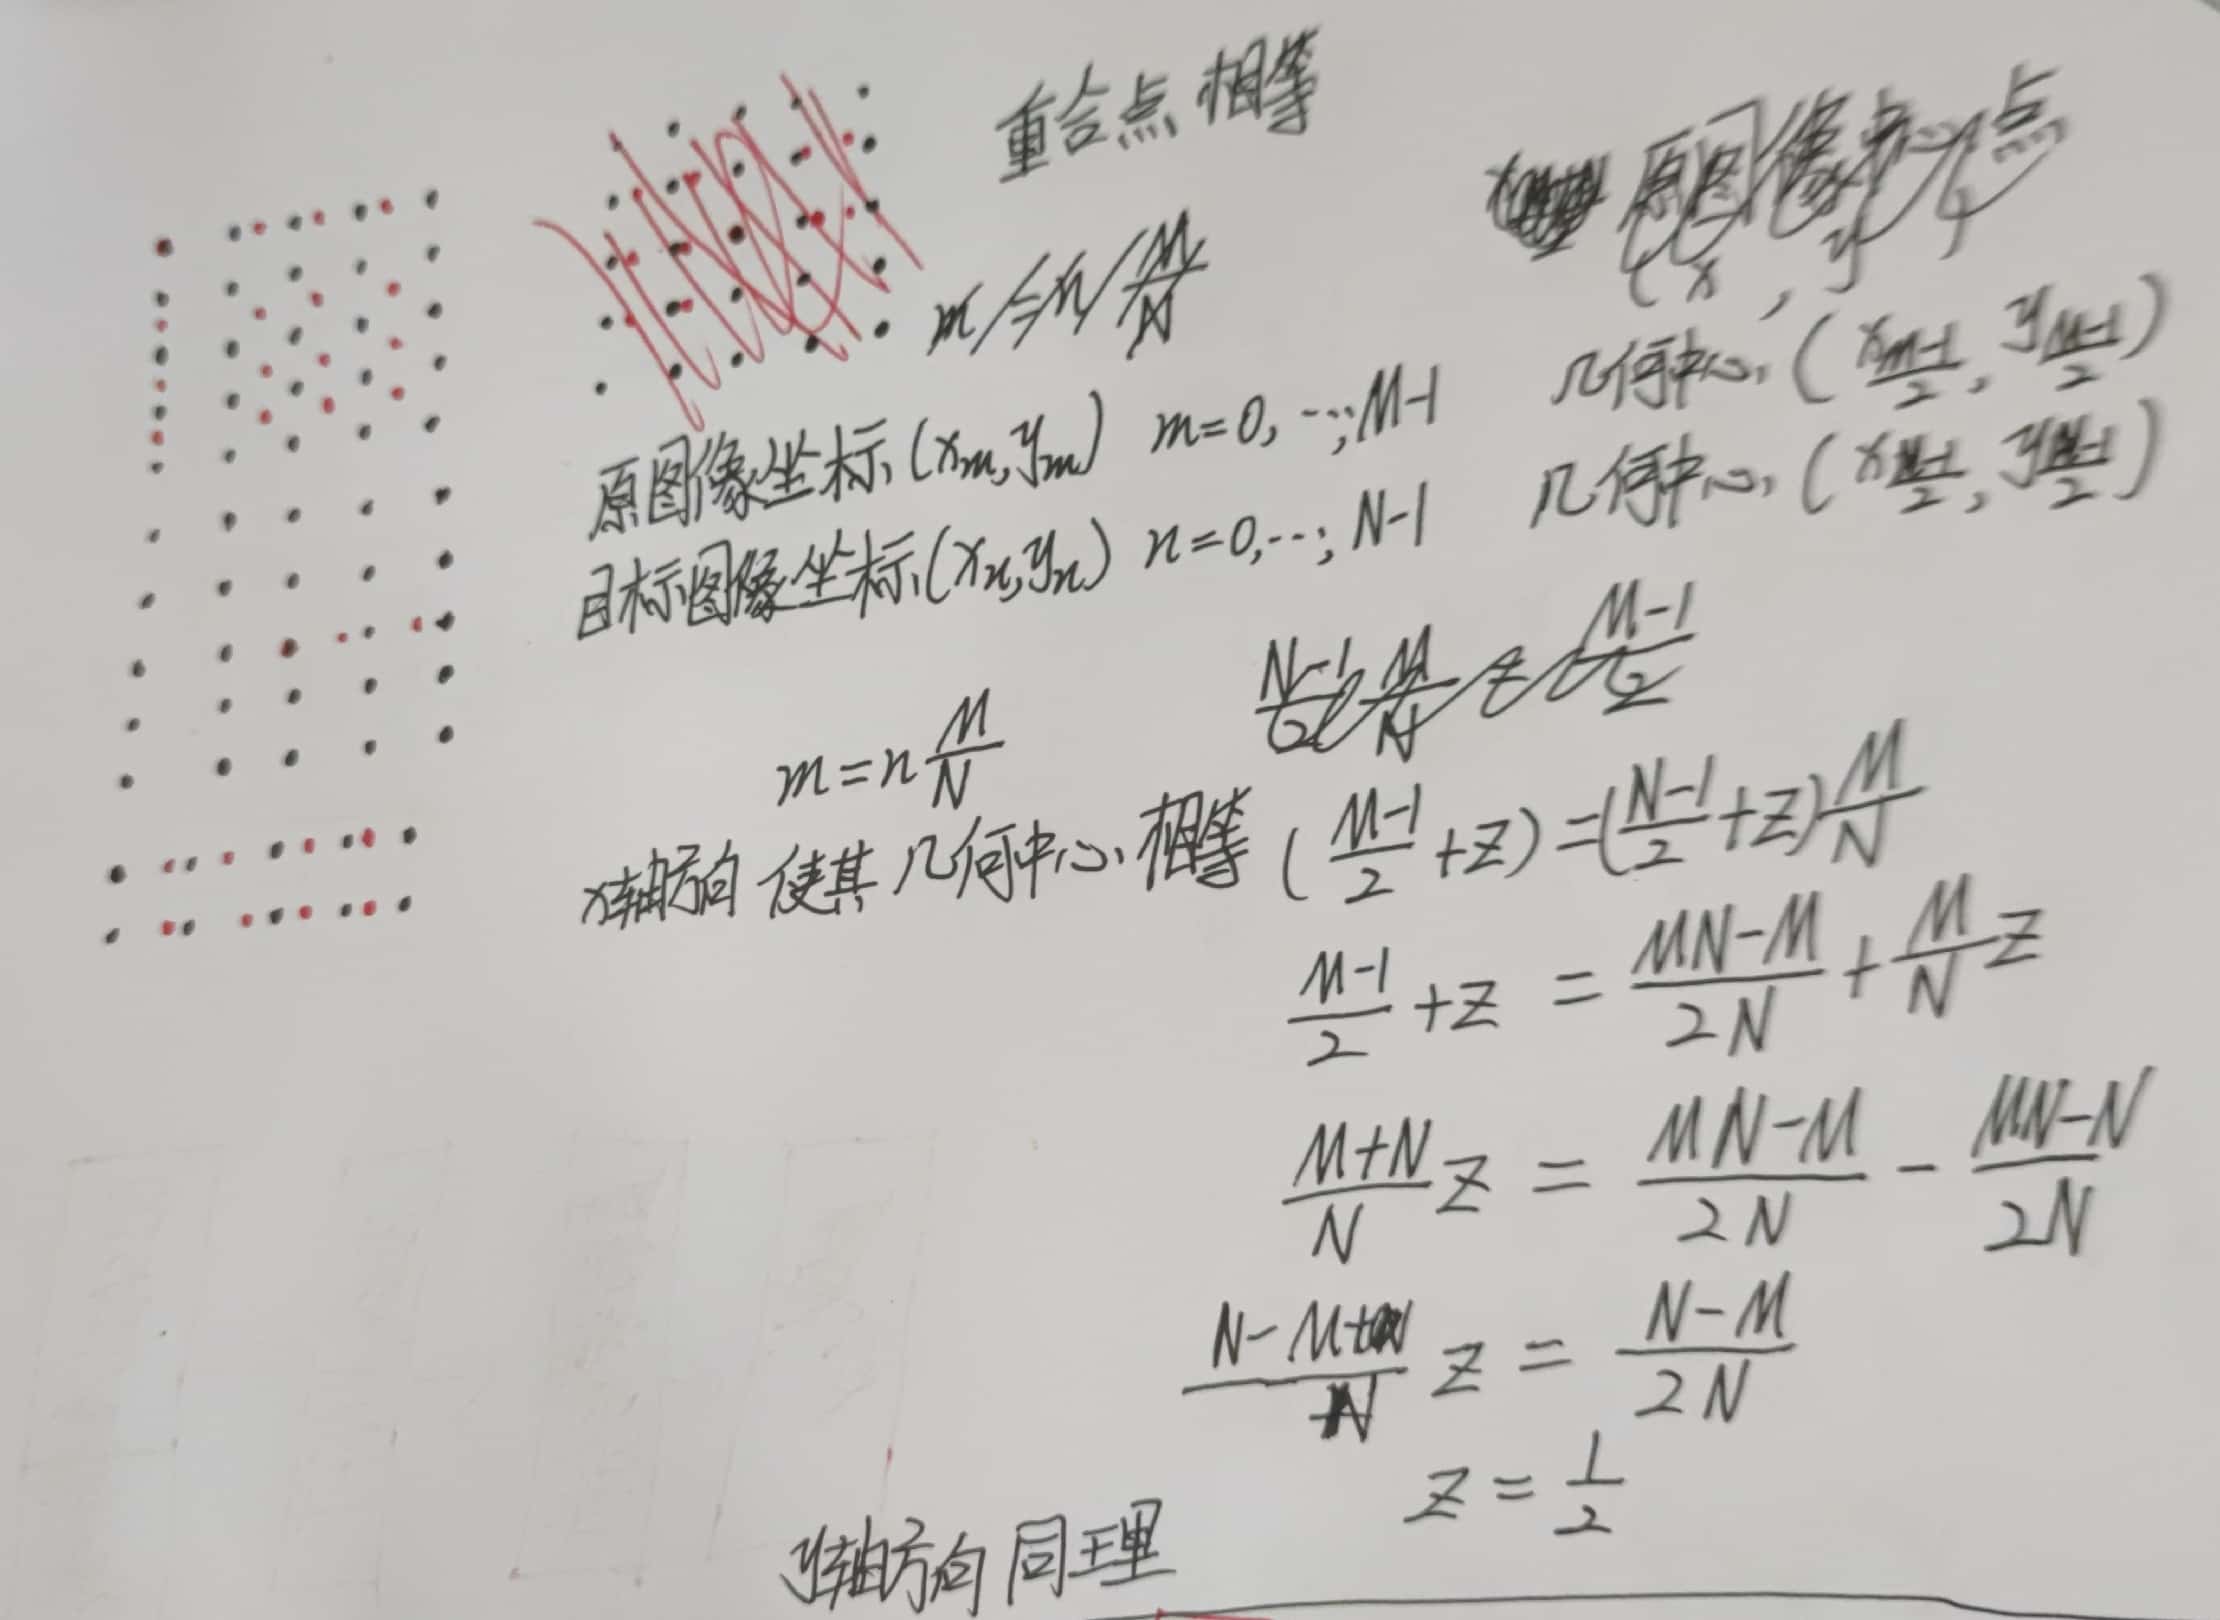 重合点 相等
原图像中心点
(x, y)
m=n M/N
几何中心 (x_{\frac{m-1}{2}}, y_{\frac{M-1}{2}})
原图像坐标 (x_m, y_m) m=0, …, M-1
几何中心 (x_{\frac{N-1}{2}}, y_{\frac{N-1}{2}})
目标图像坐标 (x_n, y_n) n=0, …, N-1
\frac{N-1}{2} \frac{M}{N} z \frac{M-1}{2}
m = n \frac{M}{N}
x轴方向 使其几何中心相等 (\frac{M-1}{2}+z) = (\frac{N-1}{2}+z)\frac{M}{N}
\frac{M-1}{2}+z = \frac{MN-M}{2N} + \frac{M}{N}z
\frac{M+N}{N}z = \frac{MN-M}{2N} - \frac{MN-N}{2N}
\frac{N-M}{N}z = \frac{N-M}{2N}
z = \frac{1}{2}
y轴方向同理